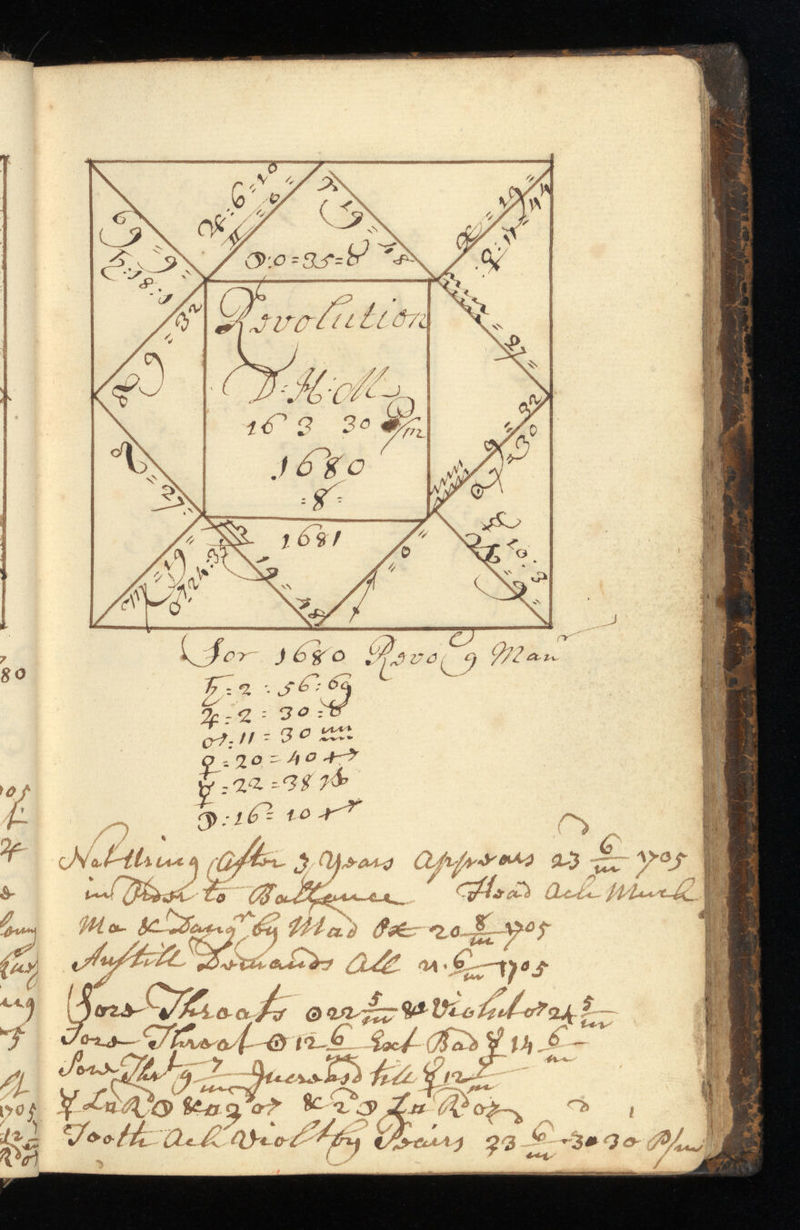 ♃:6=10
♊=0=
♈ 19=48
♓=19=
☿:11=44
69=9=
♄:18:1
☽:0=35=8
♉ 9=32
Revolution
D:H:M
16 3 30 P/m
1680
=8=
1681
♒=27=
♌=27=
♒ 9=32
☉=30
♍=19=
♂24:35
♎ 19=48
♐=0=
♀ 10:3
♑=9=
For 1680 Revo 9 Man
♄=2:56:69
♃=2=30=8
♂:11=30 ♒
♀=20=40 ♐
☿=22=38 ♑
☽:16=10 ♐
After 3 Years Appears 23 6/m 1705
in Order to Ballance Head Ach Much
Ma & Dangr by Mad Ox 20 8/m 1705
Austill Demands All 21. 6/m 1705
Sore Throats ☉22 5/m & Violnt ♂24 5/m
Sore Throat ☉12 6/m Ext Bad ☿ 14 6/m
Sore Thrt 9 7/m Increasd till ☿ 12 7/m
☿ Ln Rd ☽ & □ 2d ♂ & 2d ☽ Ln Rd ♂
Tooth Ach Violt by Pears 23d 6/m 30 30 P/m